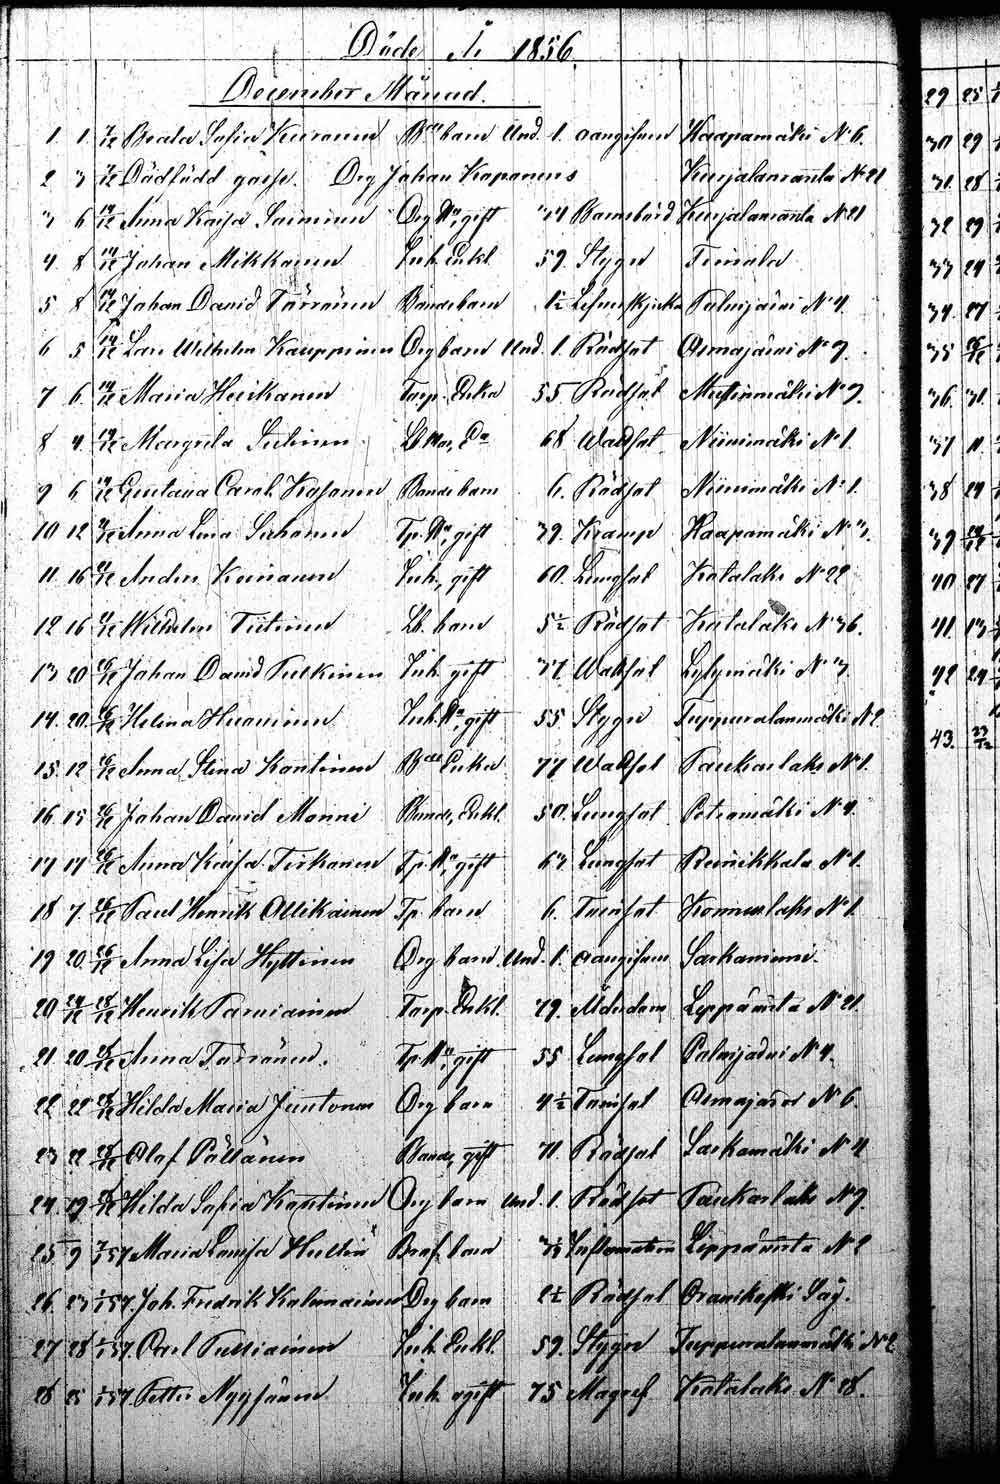 Döde År 1856.
December Månad.
1. 1. Beata Sofia Keinonen Bde barn Und. 1. oangifven Haapamäki N 6.
2 3 Dödfödd gosse. Drg Johan Kapanens Kurjalanranta N 21
3 6 14/12 Anna Kaisa Saininen Drg Ha, gift 44 Barnsbörd Kurjalanranta N 21
4. 8 14/12 Johan Mikkonen Inh. Enkl. 59. Stygn Timola
5 8 14/12 Johan David Törrönen Bonde barn 1½ Palvijärvi N 4.
6 5 14/12 Lars Wilhelm Kauppinen Drg barn Und. 1. Rödsot Osmajärvi N 9.
7 6. 14/12 Maria Heikanen Torp. Enka 55 Rödsot Mustinmäki N 9.
8 4 14/12 Margreta Sutinen 68 Wattsot Niinimäki N 1.
9 6 14/12 Gustava Carol. Kosonen Bonde barn 6. Rödsot Niinimäki N 1.
10 12 Anna Lena Suhonen Tp. Ha, gift 39. Kramp Haapamäki N 3.
11. 16 Anders Keinonen Inh., gift 60. Lungsot Kotalaks N 22
12 16 Wilhelm Tiitinen Lb. barn 5½ Rödsot Kotalaks N 36.
13 20 Johan David Pulkinen Inh. gift 37 Wattsot Lylymäki N 3
14. 20. Helena Huovinen Inh. Ha, gift 55 Stygn Tuppuralanmäki N 2
15. 12 Anna Stina Kontinen Bde Enka 77 Wattsot Paukarlaks N 1.
16 15 Johan David Monni Bonde, Enkl. 50. Lungsot Petromäki N 4.
17 17 Anna Kaisa Tirkonen Tp. Ha, gift 63 Lungsot Reinikkala N 1.
18 7. Paul Henrik Ollikainen Tp. barn 6. Tvinsot Konnuslaks N 1
19 20. 26/12 Anna Lisa Hyttinen Drg barn Und. 1. oangifven Sarkaniemi.
20 24/12 28/12 Henrik Parviainen Torp. Enkl. 79. Ålderdom Leppävirta N 21.
21. 20 Anna Törrönen. Tp. Ha, gift 55 Lungsot Palvijärvi N 4.
22 22 28/12 Hilda Maria Juntonen Drg barn 4½ Tvinsot Osmajärvi N 6.
23 22 28/12 Olof Pöllänen Bonde, gift 71 Rödsot Sarkamäki N 4
24. 19. Hilda Sofia Kontinen Drg barn Und. 1. Rödsot Paukarlaks N 9.
25 9 /57 Maria Lovisa Hultin barn Inflamation Leppävirta N 2
26. 23 /57. Joh. Fredrik Kolimainen Drg barn 2½ Rödsot Oravikoski Såg.
27 28 1/57. Carl Tuttiainen Inh. Enkl. 59. Stygn Tuppuralanmäki N 2
28 25 1/57. Petter Nyyssönen Inh. ogift 75 Magref Kotalaks N 28.
29 25
30 29
31. 28
32 29
33 24
34. 27
35
36. 31.
37 11.
38 24
39
40 27
41. 13
42 24
43. 23/12